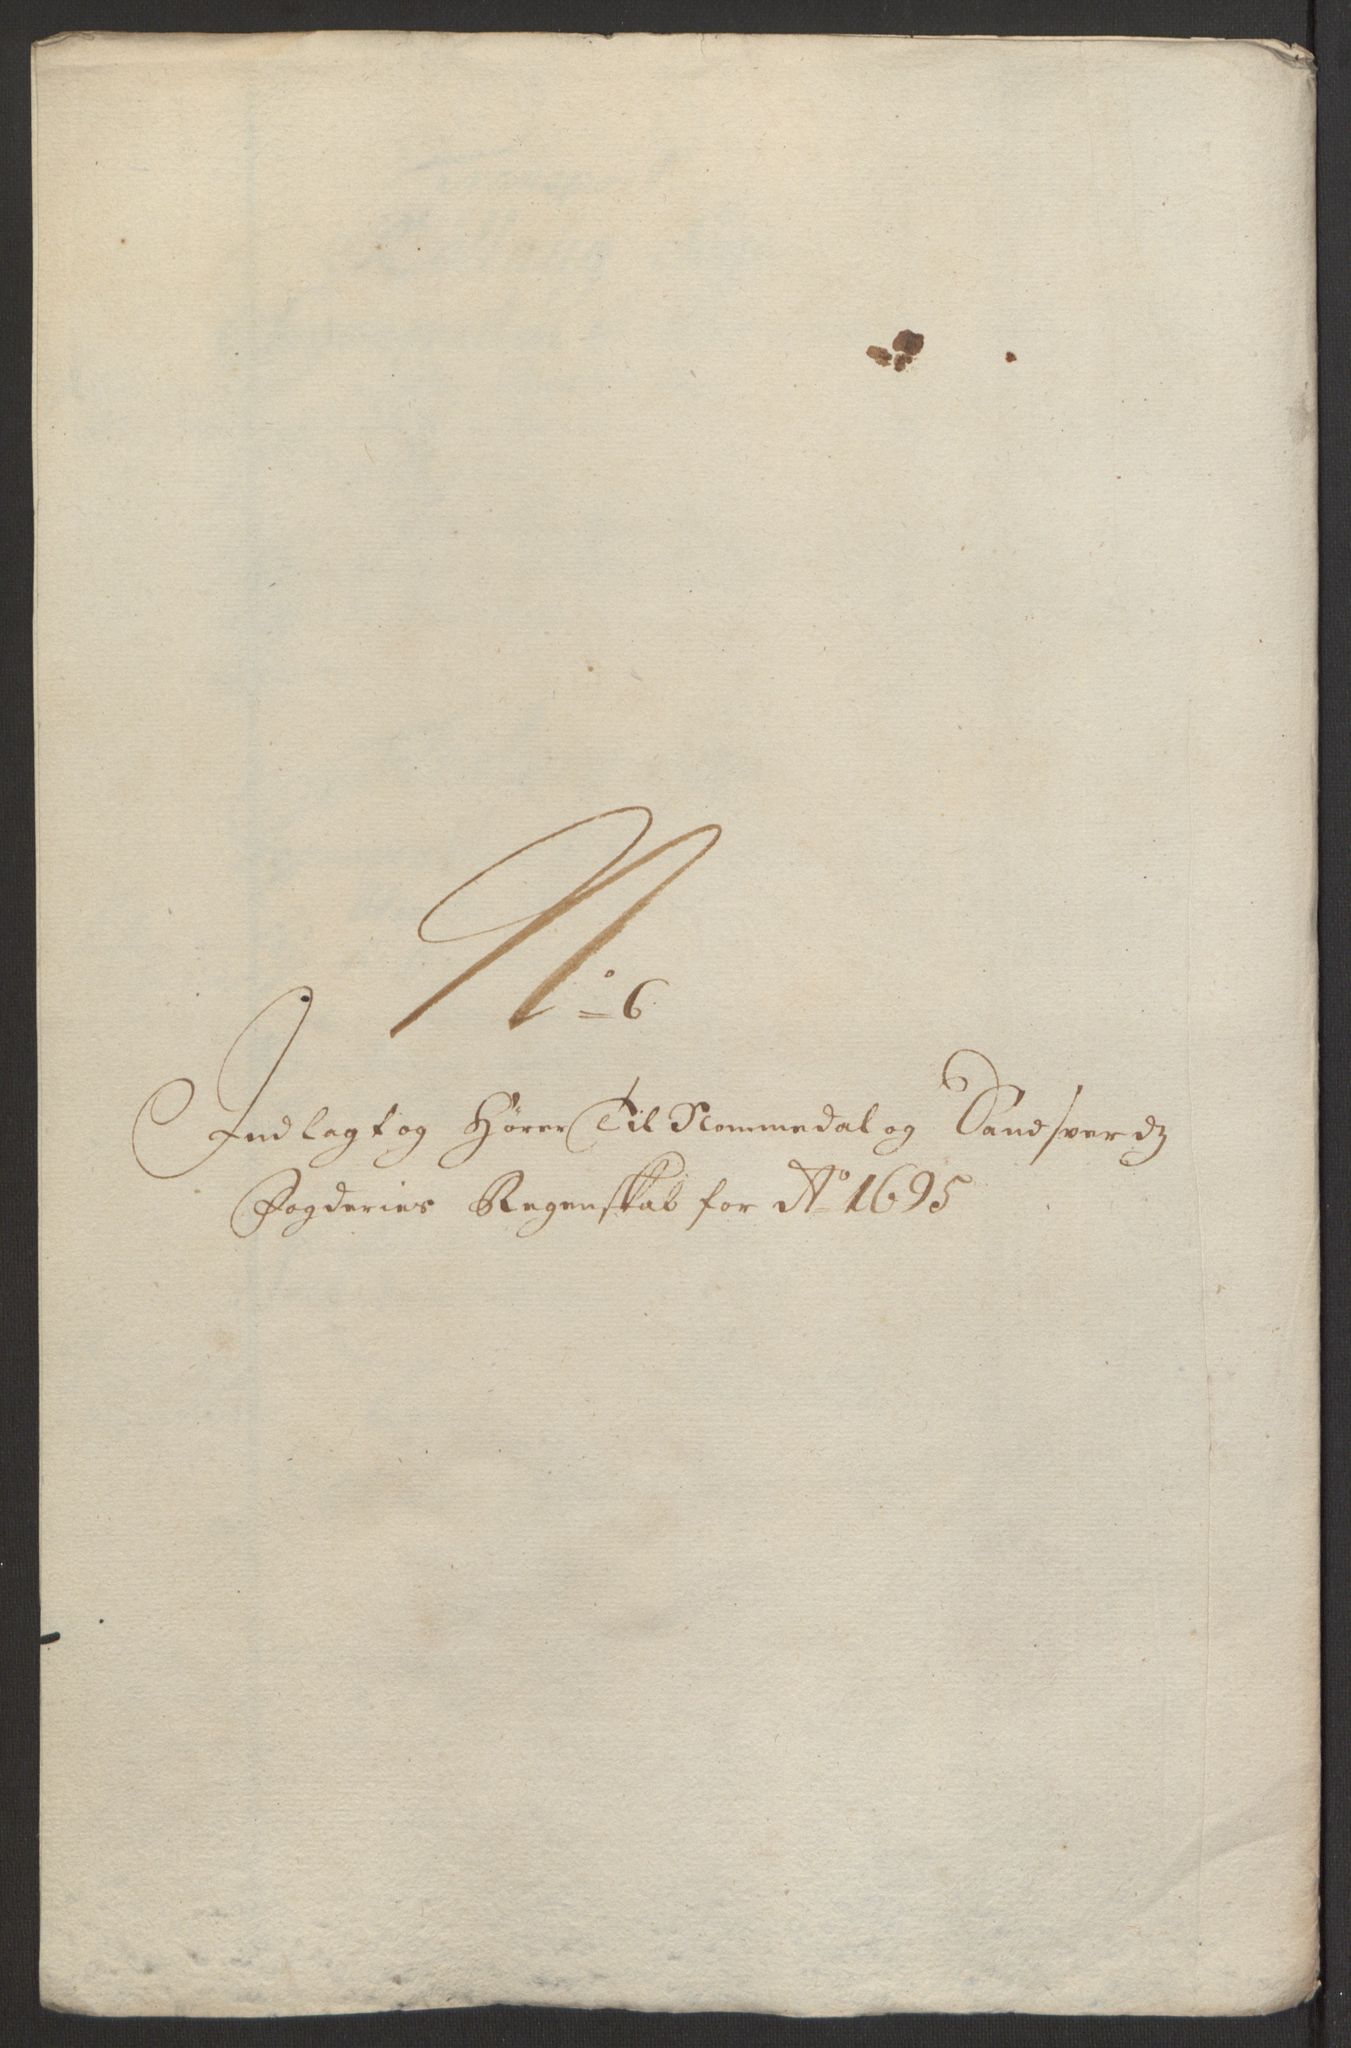 N:o 6
Indlagt og Hører Til Nommedal og Sandsverdz
Fogderies Regenskab for Ao 1695